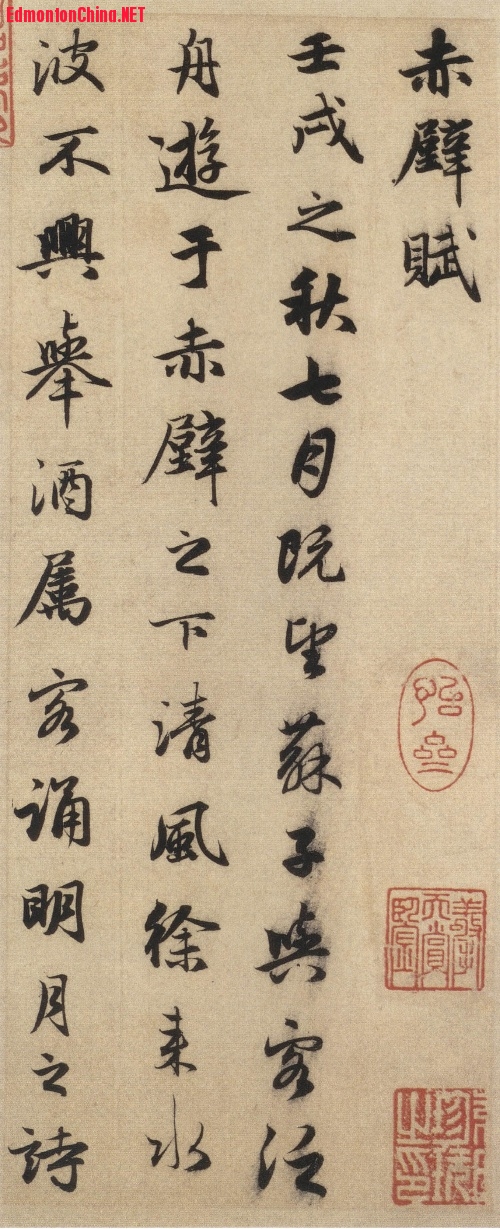 EdmontonChina.NET
赤壁賦
壬戌之秋七月既望蘇子與客泛
舟遊于赤壁之下清風徐来水
波不興舉酒属客誦明月之詩